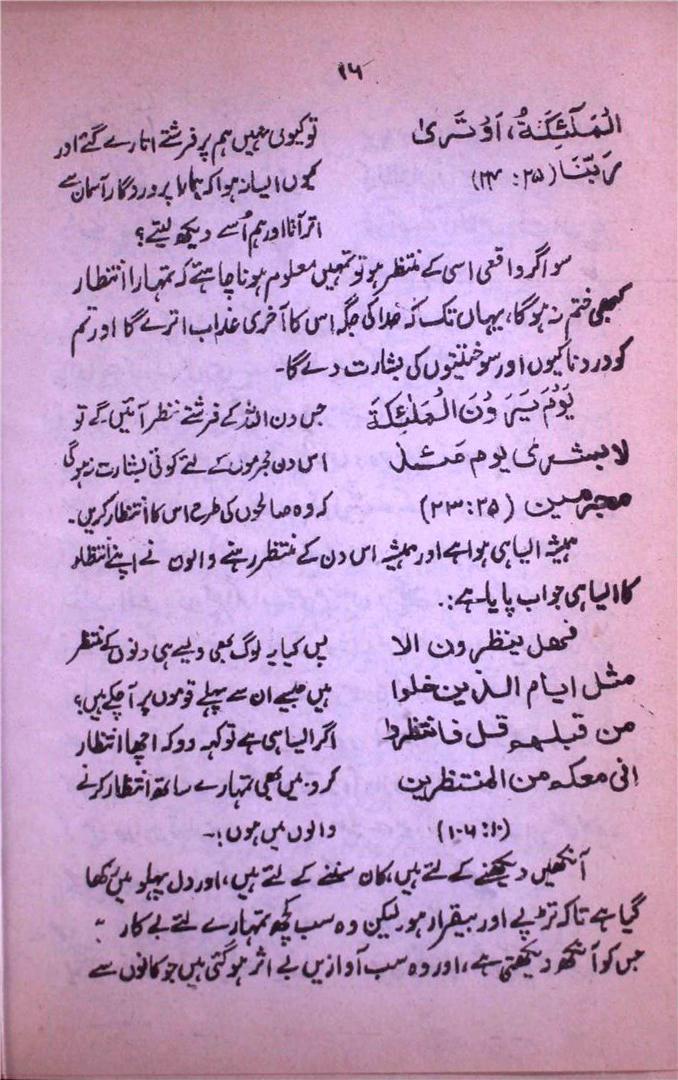 ۱۶
الْمَلٰٓئِكَةُ، اَوْ نَرٰى تو کیوں نہیں ہم پر فرشتے اتارے گئے اور
رَبَّنَا (۲۵ : ۲۳) کیوں ایسا نہ ہوا کہ ہمارا پروردگار آسمان سے
اتر آتا اور ہم اُسے دیکھ لیتے؟
سو اگر واقعی اسی کے منتظر ہو تو تمہیں معلوم ہونا چاہئے کہ تمہارا انتظار
کبھی ختم نہ ہوگا، یہاں تک کہ خدا کی جگہ اس کا آخری عذاب اترے گا اور تم
کو دردناکیوں اور سوختنیوں کی بشارت دے گا۔
يَوْمَ يَرَوْنَ الْمَلٰئِكَةَ جس دن اللہ کے فرشتے نظر آئیں گے تو
لا بشرى يوم مئذ اس دن مجرموں کے لئے کوئی بشارت نہ ہوگی
مجرمين (۲۵ : ۲۳) کہ وہ صالحوں کی طرح اس کا انتظار کریں۔
ہمیشہ ایسا ہی ہوا ہے اور ہمیشہ اس دن کے منتظر رہنے والوں نے اپنے انتظار
کا ایسا ہی جواب پایا ہے :۔
فهل ينظرون الا پس کیا یہ لوگ بھی ویسے ہی دنوں کے منتظر
مثل ايام الذين خلوا ہیں جیسے ان سے پہلے قوموں پر آچکے ہیں؟
من قبلهم قل فانتظروا اگر ایسا ہی ہے تو کہہ دو کہ اچھا انتظار
انى معكم من المنتظرين کرو، میں بھی تمہارے ساتھ انتظار کرنے
(۱۰ : ۱۰۲) والوں میں ہوں!۔
آنکھیں دیکھنے کے لئے ہیں، کان سننے کے لئے ہیں، اور دل پہلو میں رکھا
گیا ہے تاکہ تڑپے اور بیقرار ہو لیکن وہ سب کچھ تمہارے لئے بے کار ہے
جس کو آنکھ دیکھتی ہے، اور وہ سب آوازیں بے اثر ہوگئی ہیں جو کانوں سے